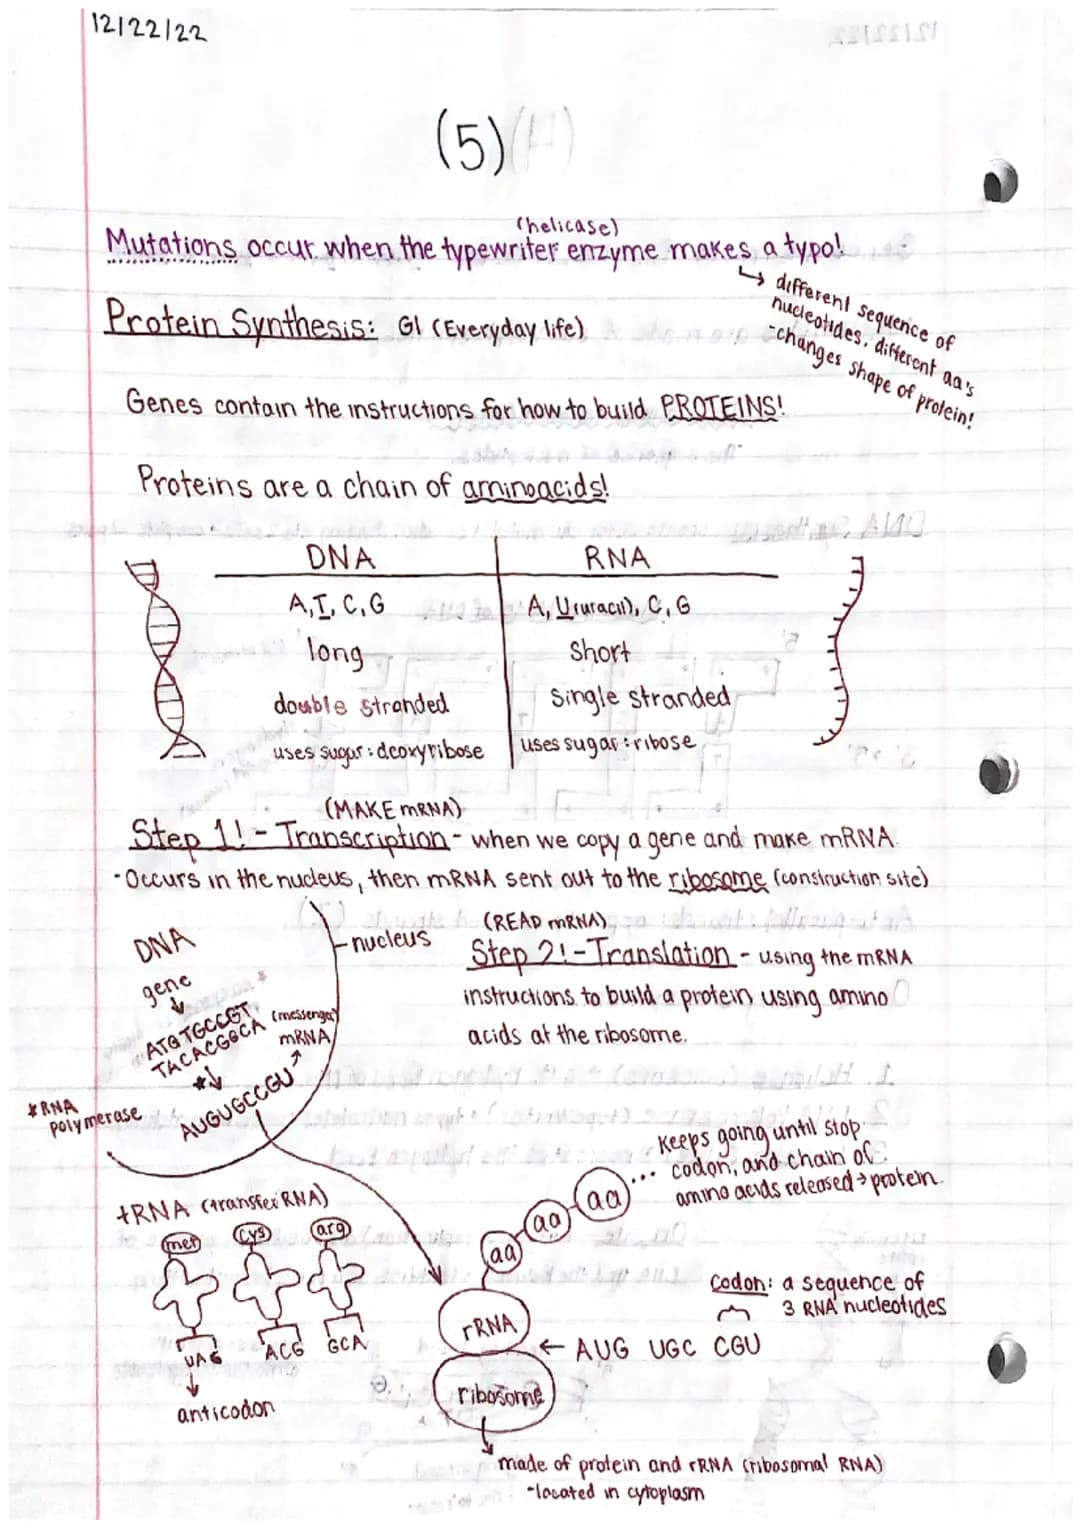 12/22/22
(5)
(helicase)
Mutations occur when the typewriter enzyme makes a typo!
↳ different sequence of
nucleotides, different aa's
-changes shape of protein!
Protein Synthesis: G1 (Everyday life)
Genes contain the instructions for how to build PROTEINS!
Proteins are a chain of aminoacids!
DNA
RNA
A, T, C, G
A, U(uracil), C, G
long
short
double stranded
single stranded
uses sugar: deoxyribose
uses sugar: ribose
(MAKE mRNA)
Step 1! - Transcription - when we copy a gene and make mRNA.
-Occurs in the nucleus, then mRNA sent out to the ribosome (construction site)
nucleus
DNA
gene
ATGTGCCGT
TACACGGCA
(messenger)
mRNA
*↓
AUGUGCCGU
*RNA
polymerase
(READ mRNA)
Step 2! - Translation - using the mRNA
instructions to build a protein using amino
acids at the ribosome.
Keeps going until stop
codon, and chain of
amino acids released → protein.
tRNA (transfer RNA)
met
cys
arg
UAG
ACG
GCA
anticodon
aa
aa
aa ...
Codon: a sequence of
3 RNA nucleotides
rRNA
← AUG UGC CGU
ribosome
made of protein and rRNA (ribosomal RNA)
-located in cytoplasm